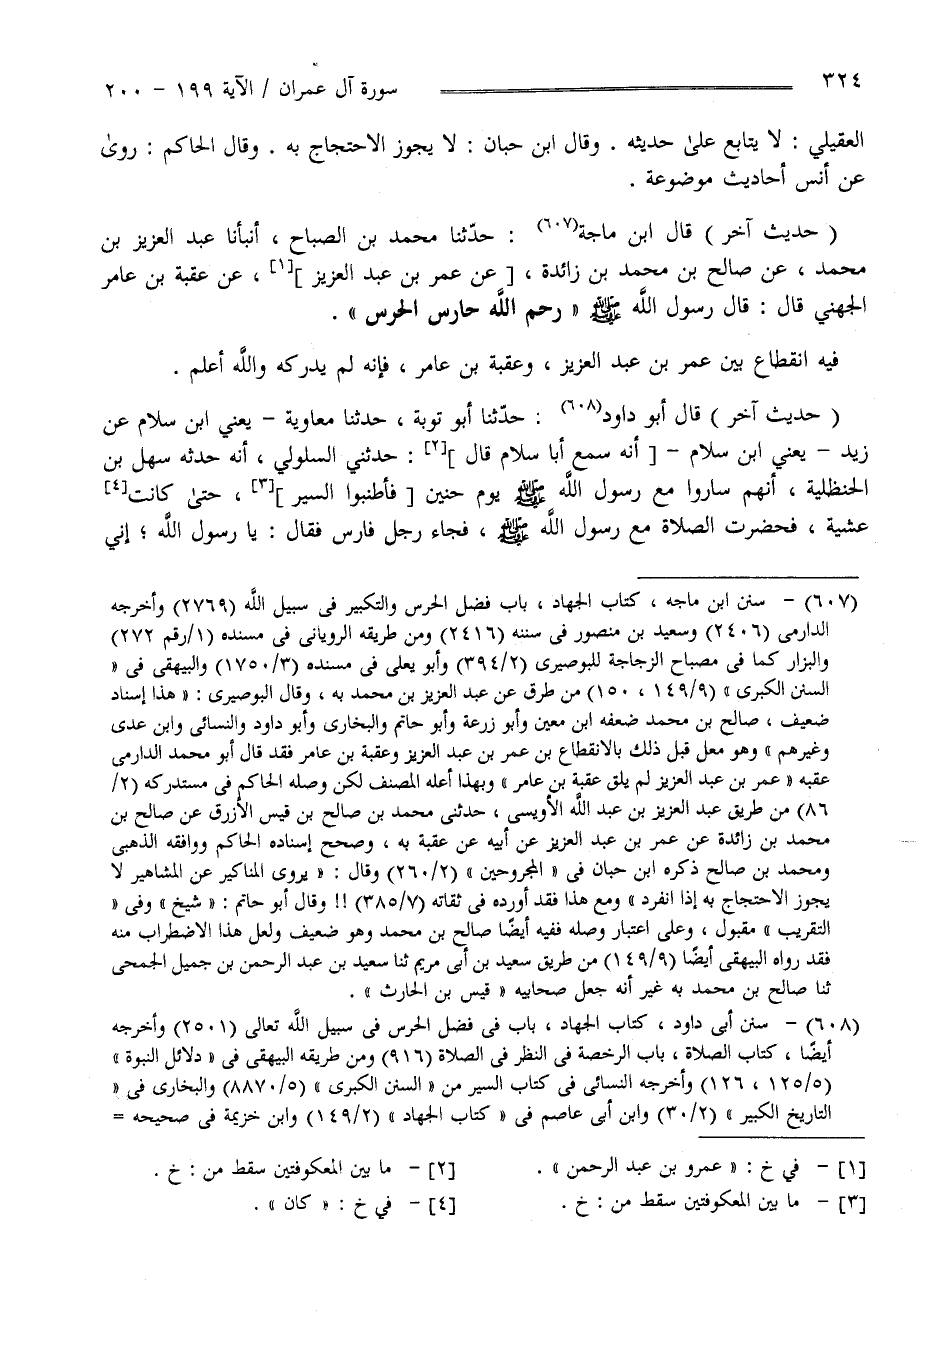 ٣٢٤
سورة آل عمران / الآية ١٩٩ - ٢٠٠
العقيلي : لا يتابع علىٰ حديثه . وقال ابن حبان : لا يجوز الاحتجاج به . وقال الحاكم : روىٰ
عن أنس أحاديث موضوعة .
( حديث آخر ) قال ابن ماجة(٦٠٧) : حدّثنا محمد بن الصباح ، أنبأنا عبد العزيز بن
محمد ، عن صالح بن محمد بن زائدة ، [ عن عمر بن عبد العزيز ][١] ، عن عقبة بن عامر
الجهني قال : قال رسول اللَّه ﷺ « رحم اللَّه حارس الحرس » .
فيه انقطاع بين عمر بن عبد العزيز ، وعقبة بن عامر ، فإنه لم يدركه واللَّه أعلم .
( حديث آخر ) قال أبو داود(٦٠٨) : حدّثنا أبو توبة ، حدثنا معاوية - يعني ابن سلام عن
زيد - يعني ابن سلام - [ أنه سمع أبا سلام قال ][٢] : حدثني السلولي ، أنه حدثه سهل بن
الحنظلية ، أنهم ساروا مع رسول اللَّه ﷺ يوم حنين [ فأطنبوا السير ][٣] ، حتىٰ كانت[٤]
عشية ، فحضرت الصلاة مع رسول اللَّه ﷺ ، فجاء رجل فارس فقال : يا رسول اللَّه ؛ إني
(٦٠٧) - سنن ابن ماجه ، كتاب الجهاد ، باب فضل الحرس والتكبير فى سبيل اللَّه (٢٧٦٩) وأخرجه
الدارمى (٢٤٠٦) وسعيد بن منصور فى سننه (٢٤١٦) ومن طريقه الرويانى فى مسنده (١/رقم ٢٧٢)
والبزار كما فى مصباح الزجاجة للبوصيرى (٣٩٤/٢) وأبو يعلى فى مسنده (١٧٥٠/٣) والبيهقى فى «
السنن الكبرى » (١٤٩/٩ ، ١٥٠) من طرق عن عبد العزيز بن محمد به ، وقال البوصيرى : « هذا إسناد
ضعيف ، صالح بن محمد ضعفه ابن معين وأبو زرعة وأبو حاتم والبخارى وأبو داود والنسائى وابن عدى
وغيرهم » وهو معل قبل ذلك بالانقطاع بن عمر بن عبد العزيز وعقبة بن عامر فقد قال أبو محمد الدارمى
عقبه « عمر بن عبد العزيز لم يلق عقبة بن عامر » وبهذا أعله المصنف لكن وصله الحاكم فى مستدركه (٢/
٨٦) من طريق عبد العزيز بن عبد اللَّه الأويسى ، حدثنى محمد بن صالح بن قيس الأزرق عن صالح بن
محمد بن زائدة عن عمر بن عبد العزيز عن أبيه عن عقبة به ، وصحح إسناده الحاكم ووافقه الذهبى
ومحمد بن صالح ذكره ابن حبان فى « المجروحين » (٢٦٠/٢) وقال : « يروى المناكير عن المشاهير لا
يجوز الاحتجاج به إذا انفرد » ومع هذا فقد أورده فى ثقاته (٣٨٥/٧) !! وقال أبو حاتم : « شيخ » وفى «
التقريب » مقبول ، وعلى اعتبار وصله ففيه أيضًا صالح بن محمد وهو ضعيف ولعل هذا الاضطراب منه
فقد رواه البيهقى أيضًا (١٤٩/٩) من طريق سعيد بن أبى مريم ثنا سعيد بن عبد الرحمن بن جميل الجمحى
ثنا صالح بن محمد به غير أنه جعل صحابيه « قيس بن الحارث » .
(٦٠٨) - سنن أبى داود ، كتاب الجهاد ، باب فى فضل الحرس فى سبيل اللَّه تعالى (٢٥٠١) وأخرجه
أيضًا ، كتاب الصلاة ، باب الرخصة فى النظر فى الصلاة (٩١٦) ومن طريقه البيهقى فى « دلائل النبوة »
(١٢٥/٥ ، ١٢٦) وأخرجه النسائى فى كتاب السير من « السنن الكبرى » (٨٨٧٠/٥) والبخارى فى «
التاريخ الكبير » (٣٠/٢) وابن أبى عاصم فى « كتاب الجهاد » (١٤٩/٢) وابن خزيمة فى صحيحه =
[١] - في خ : « عمرو بن عبد الرحمن » .
[٢] - ما بين المعكوفتين سقط من : خ .
[٣] - ما بين المعكوفتين سقط من : خ .
[٤] - في خ : « كان » .